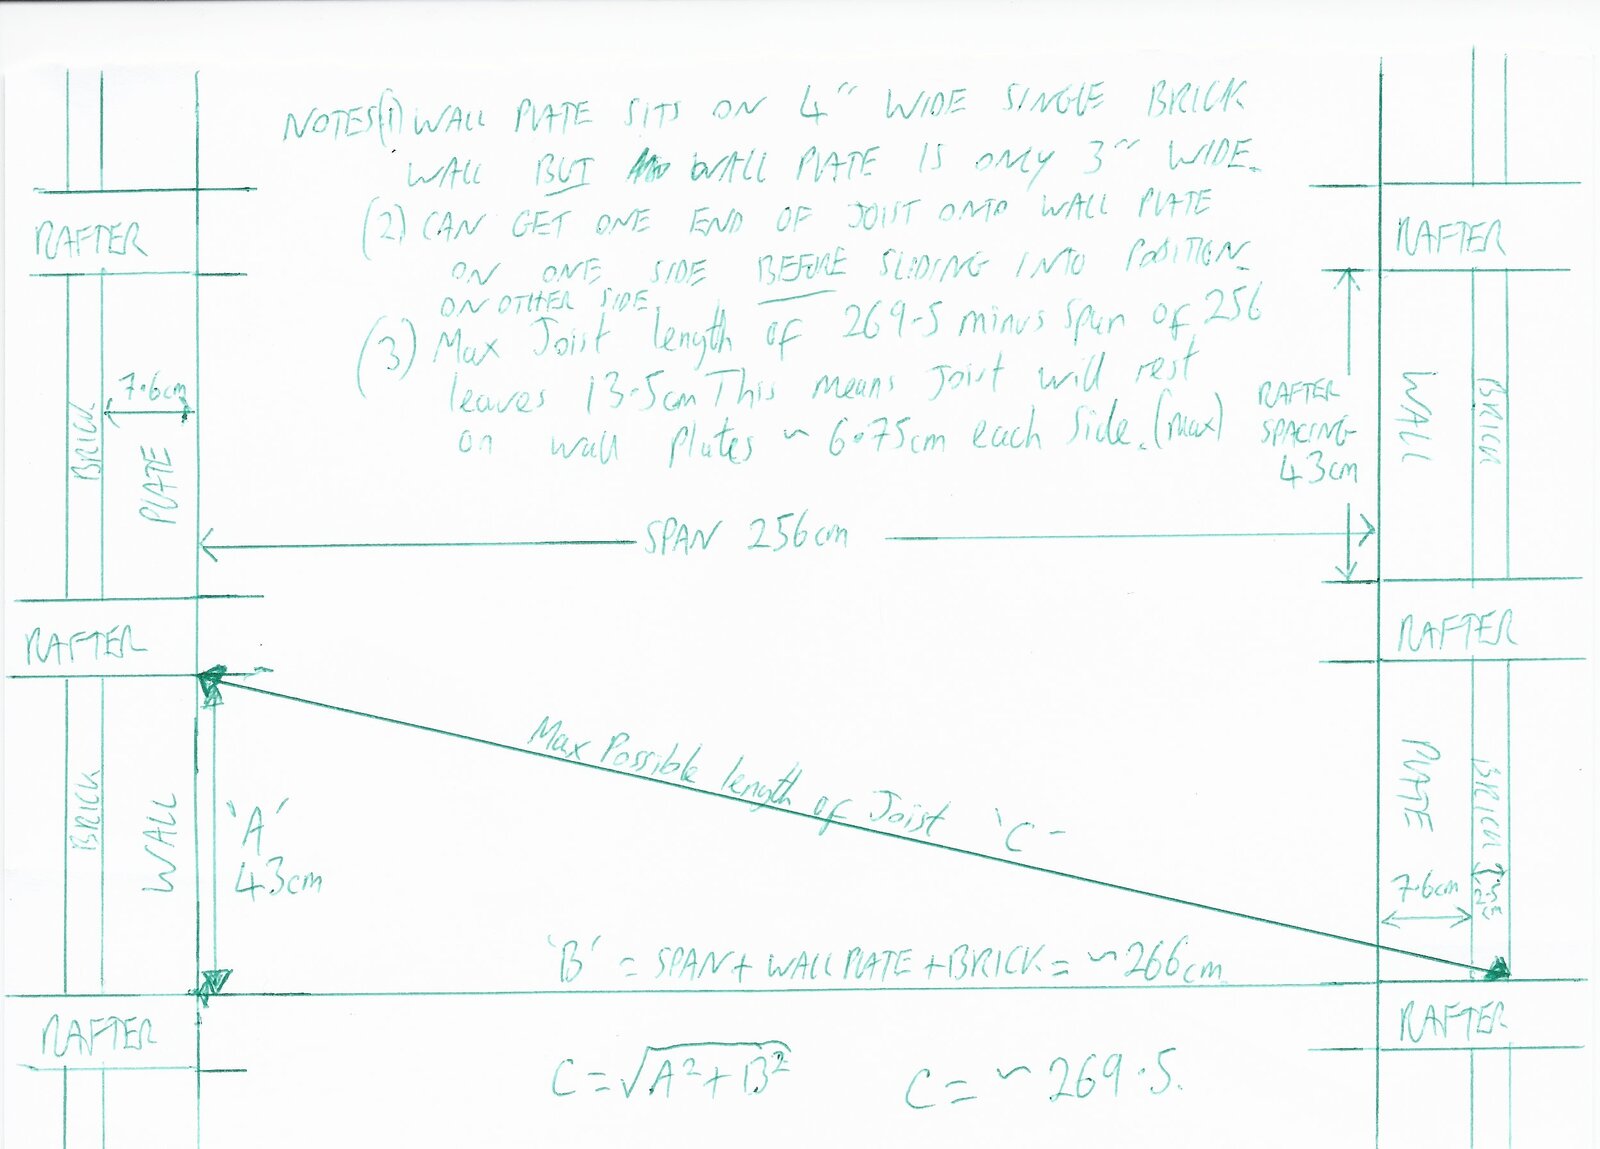 NOTES (1) WALL PLATE SITS ON 4" WIDE SINGLE BRICK
WALL BUT WALL PLATE IS ONLY 3" WIDE.
(2) CAN GET ONE END OF JOIST ONTO WALL PLATE
ON ONE SIDE BEFORE SLIDING INTO POSITION
ON OTHER SIDE.
(3) Max Joist length of 269.5 minus span of 256
leaves 13.5cm This means Joist will rest
on wall plates ~ 6.75cm each side. (max)
RAFTER
RAFTER
7.6cm
BRICK
PLATE
RAFTER
SPACING
43cm
WALL
BRICK
SPAN 256cm
RAFTER
RAFTER
Max Possible length of Joist 'C'
BRICK
WALL
'A'
43cm
PLATE
BRICK
7.6cm
'B' = SPAN + WALL PLATE + BRICK = ~266cm
RAFTER
RAFTER
C = √A²+B²
C = ~ 269.5.